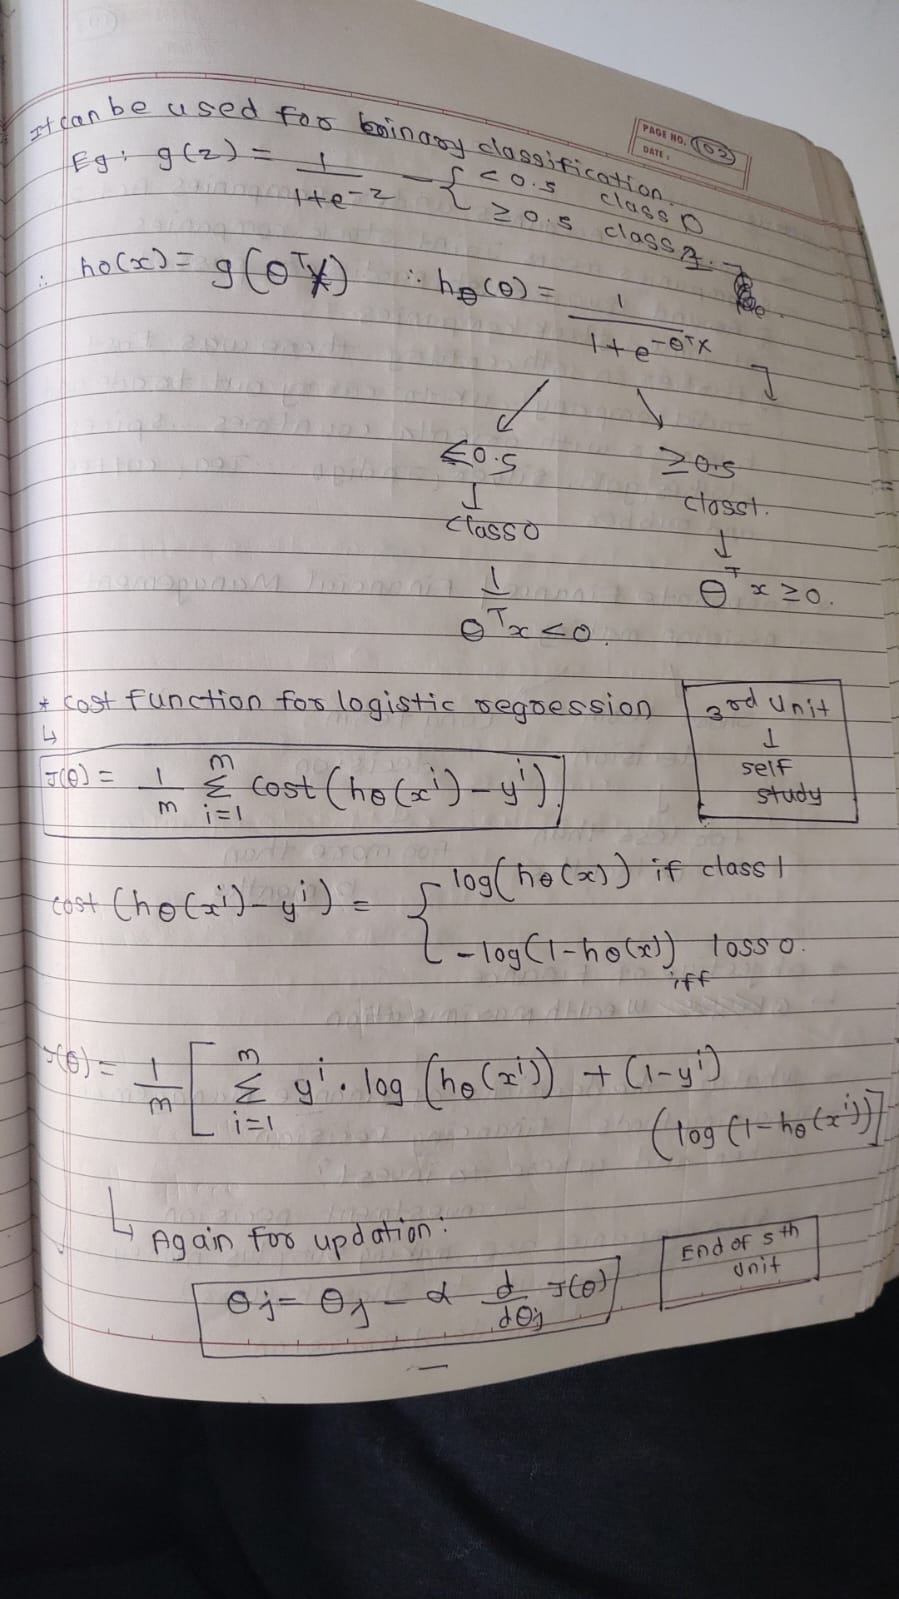 PAGE NO. 103
DATE:
It can be used for binary classification.
Eg: g(z) = 1/(1+e^-z) - { < 0.5 class 0
≥ 0.5 class 1.
∴ hθ(x) = g(θ^T x) ∴ hθ(θ) = 1/(1+e^-θ^T x)
↙ ↘
≤0.5 ≥0.5
↓ class 1.
class 0 ↓
↓ θ^T x ≥ 0.
θ^T x < 0.
* Cost function for logistic regression
3rd Unit
↓
self
study
↳
J(θ) = 1/m Σ_{i=1}^{m} cost (hθ(x^i) - y^i)
cost (hθ(x^i) - y^i) = { log(hθ(x)) if class 1
-log(1-hθ(x)) loss 0.
iff
J(θ) = 1/m [ Σ_{i=1}^{m} y^i · log (hθ(x^i)) + (1-y^i)
(log (1-hθ(x^i))]
↳ Again for updation:
θj = θj - α d/dθj J(θ)
End of 5th
Unit